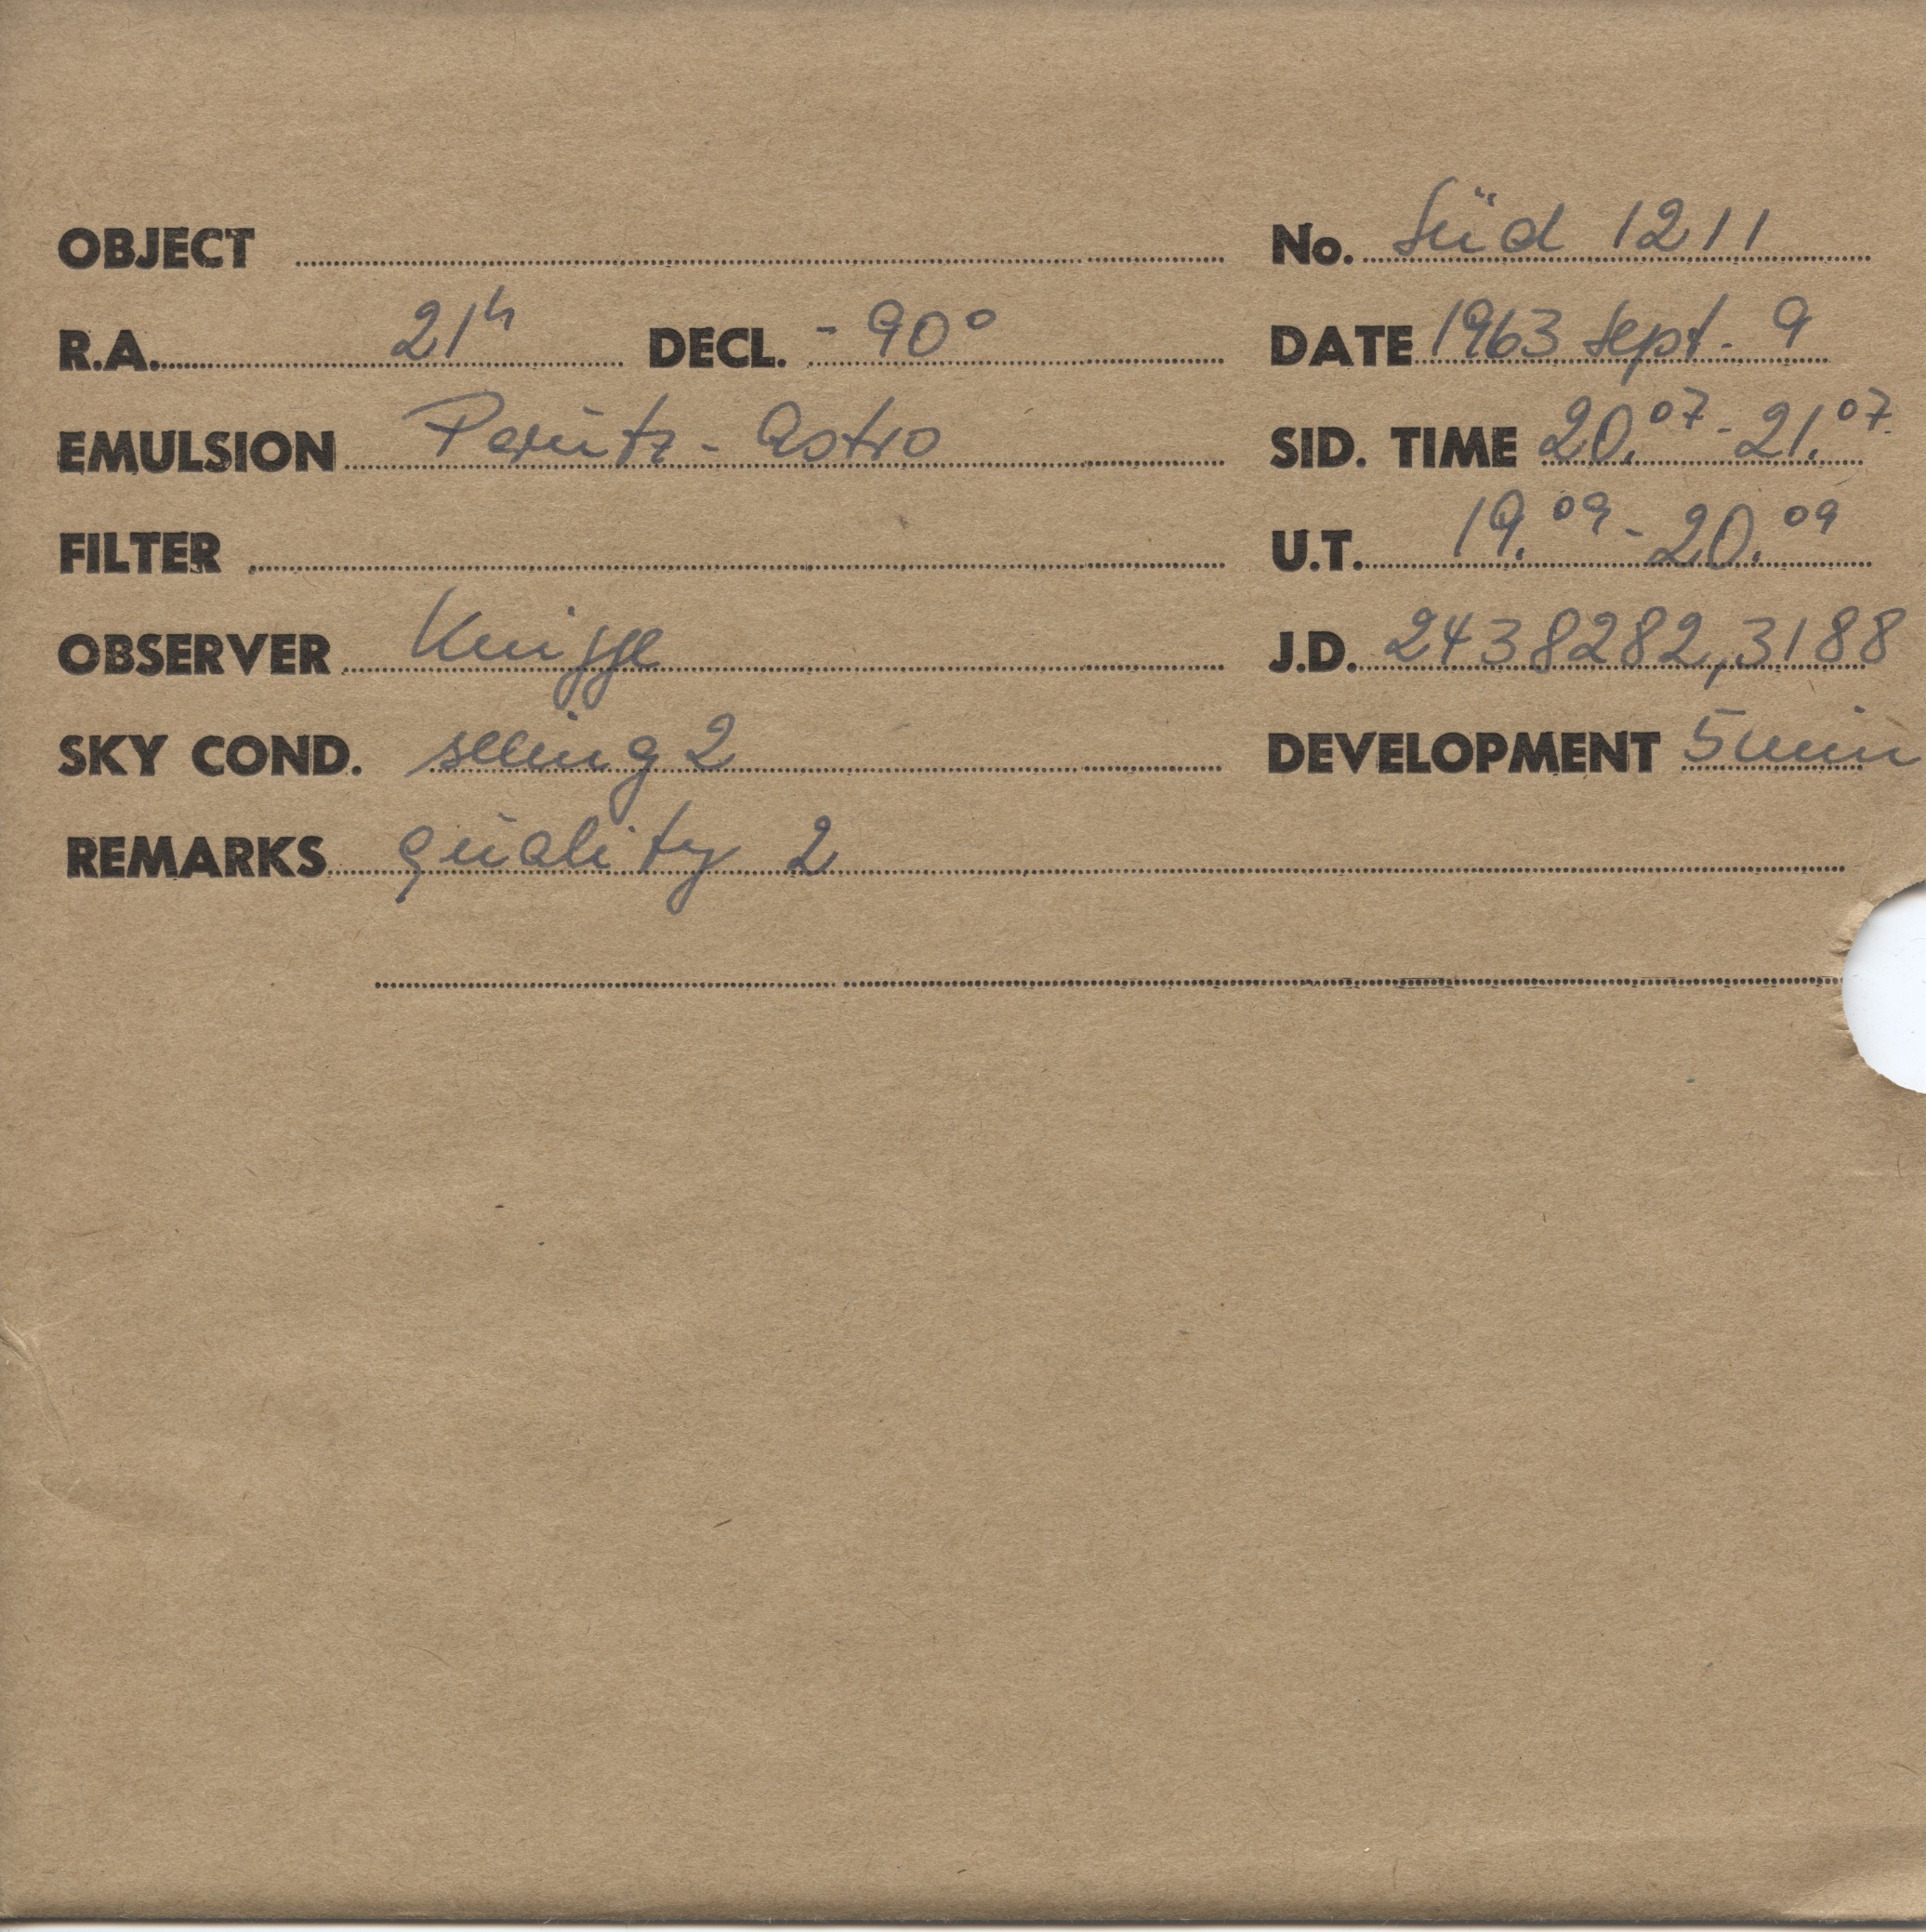 OBJECT No. Süd 1211
R.A. 21h DECL. - 90°
DATE 1963 Sept. 9
EMULSION Perutz - Astro
SID. TIME 20.07 - 21.07
FILTER
U.T. 19.09 - 20.09
OBSERVER Knigge
J.D. 2438282,3188
SKY COND. seeing 2
DEVELOPMENT 5 min
REMARKS quality 2